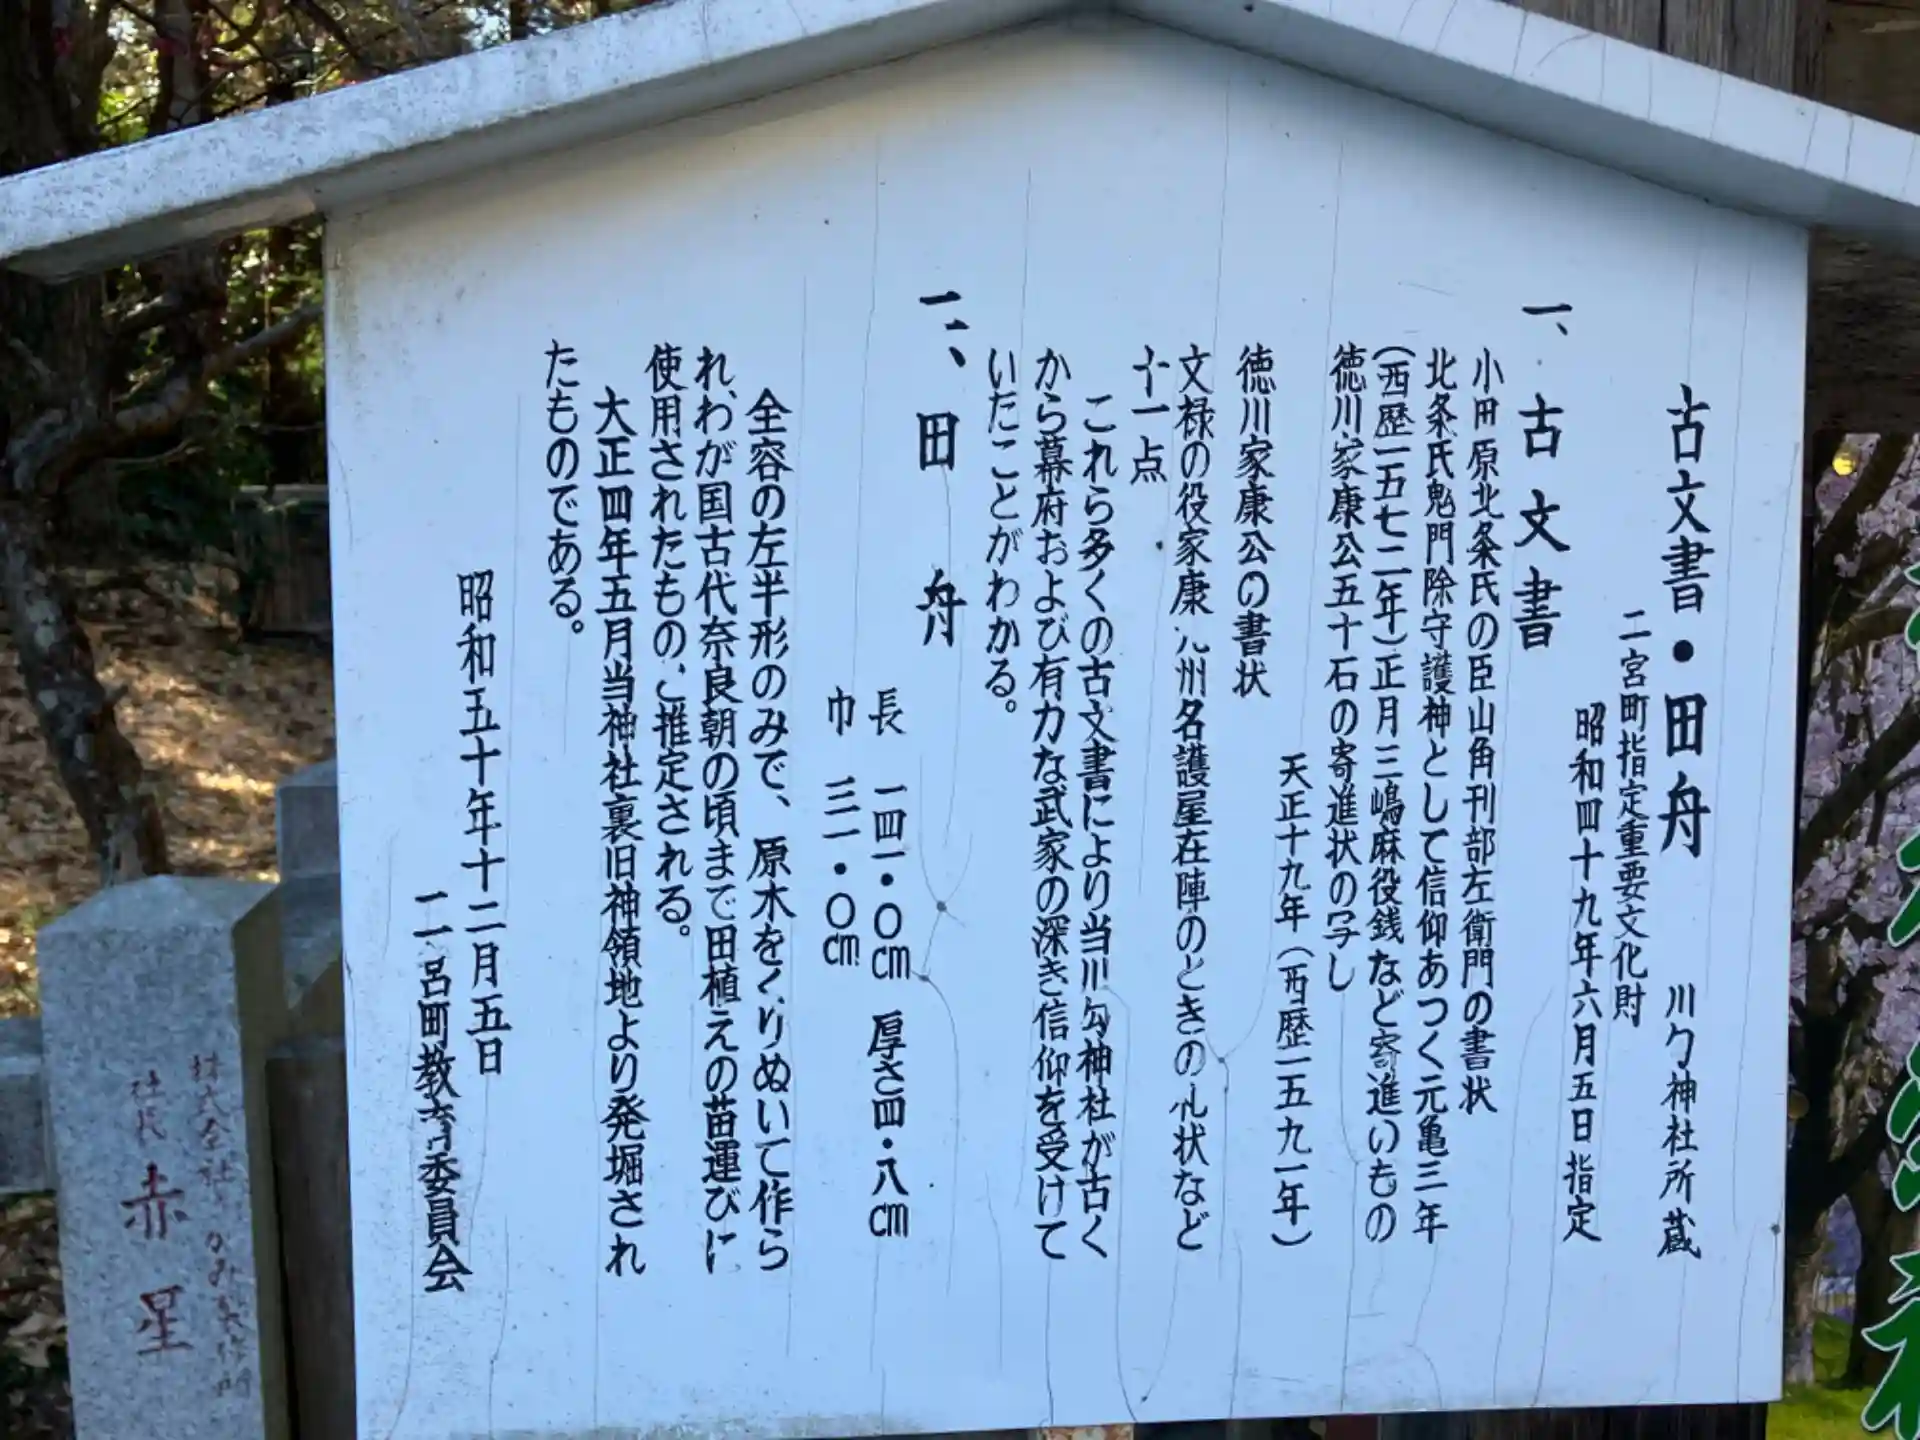 古文書・田舟　川勾神社所蔵
二宮町指定重要文化財
昭和四十九年六月五日指定
一、古文書
小田原北条氏の臣山角刑部左衛門の書状
北条氏鬼門除守護神として信仰あつく元亀三年
(西歴一五七二年)正月三嶋麻役銭など寄進いもの
徳川家康公五十石の寄進状の写し
天正十九年(西歴一五九一年)
徳川家康公の書状
文禄の役家康九州名護屋在陣のときの礼状など
十一点
これら多くの古文書により当川勾神社が古く
から幕府および有力な武家の深き信仰を受けて
いたことがわかる。
二、田舟
長　一四一・〇cm　厚さ四・八cm
巾　三一・〇cm
全容の左半形のみで、原木をくりぬいて作ら
れ、わが国古代奈良朝の頃まで田植えの苗運びに
使用されたものと推定される。
大正四年五月当神社裏旧神領地より発堀され
たものである。
昭和五十年十二月五日
二宮町教育委員会
株式会社
社長　赤星